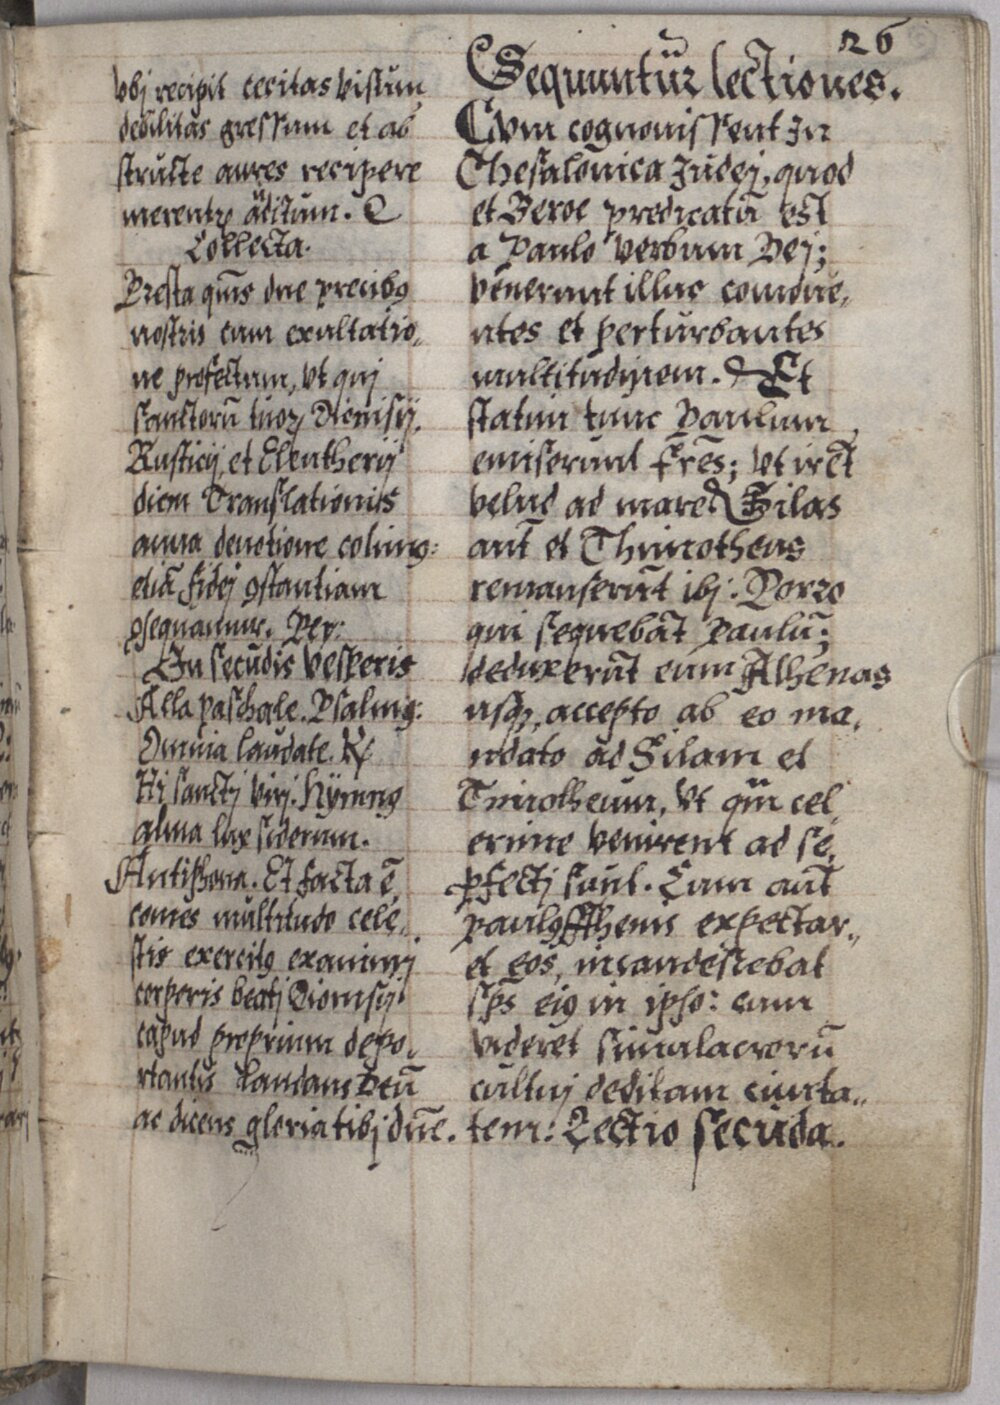 26
vbj recipit cecitas visum
debilitas gressum et ab
structe aures recipere
merentr aditum. C
Collecta.
Presta qms dne precibg
nostris cum exultatio,
ne profectum, vt quj
sanctorū tuorz Dionisij.
Rusticij et Eleutherij
diem Translationis
annua deuotione colimg:
etiā fidej gstantiam
gsequamur. Per:
In secūdis vesperis
Alla paschale. Psalmg:
Omnia laudate. R
Hi sanctj virj. Hÿmng
alma lux siderum.
Antiphona. Et facta ē
comes multitudo cele,
stis exercitg exanimj
corporis beatj Dionisij
capud proprium depo,
rtantis laudans deū
ac dicens gloria tibj dūe.
Sequuntūr lectiones.
Cvm cognouissent In
Thesalonica Iudej, quod
et Beroe predicatū est
a Paulo verbum Dej;
venerunt illuc comoue,
ntes et perturbantes
multitudinem. Et
statim tunc Paulum
emiserunt frēs; vt irēt
velud ad mare Silas
aūt et Thimotheus
remanserūt ibj. Porro
qui sequebāt Paulū;
deduxerūt eum Athenas
usqz, accepto ab eo ma,
ndato ad Silam et
Timotheum, vt qm cel,
erime venirent ad se,
pfectj sunt. Cum aūt
paulg Athenis expectar,,
et eos, incandescebat
sps eig in ipso: cum
videret simulacrorū
cultuj deditam ciuita,,
tem: Lectio secūda.